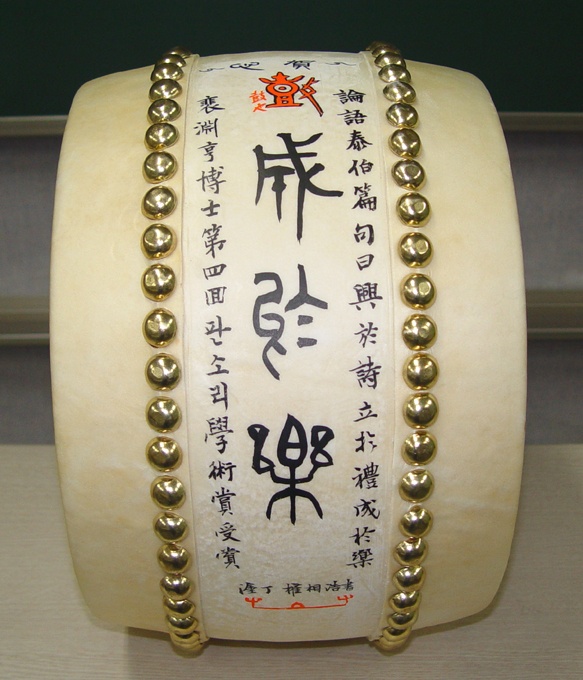 賀
論語泰伯篇句曰興於詩立於禮成於樂
成於樂
裵淵亨博士第四回판소리學術賞受賞
丁 權相浩書